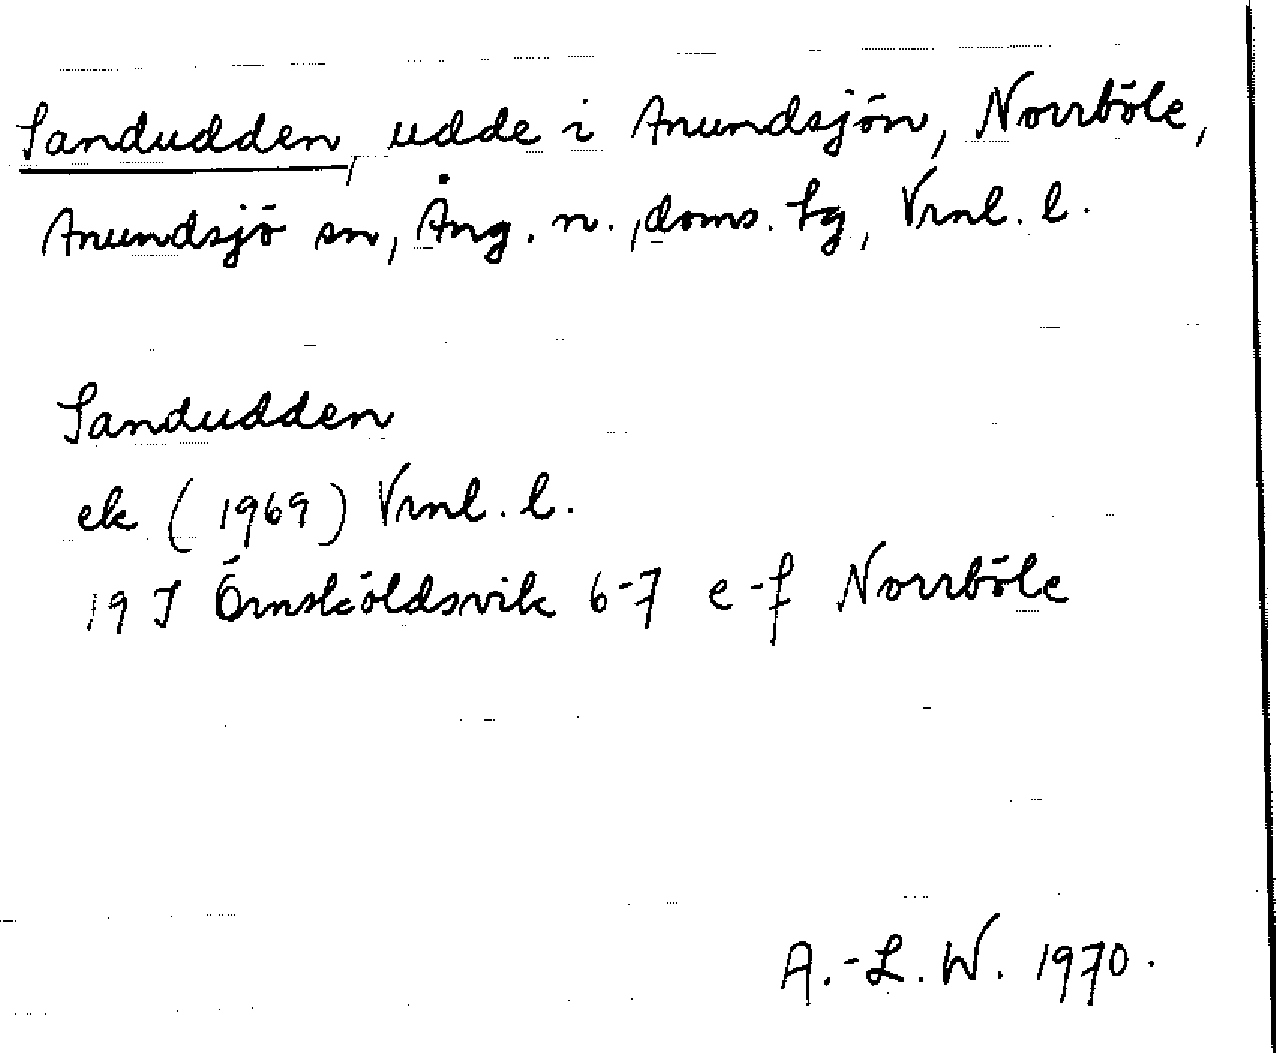 Sandudden, udde i Anundsjön, Norrböle,
Anundsjö sn, Ång. n., doms. hg, Vrnl. l.
Sandudden
ek (1969) Vrnl. l.
19 J Örnsköldsvik 6-7 e-f Norrböle
A.-L. W. 1970.